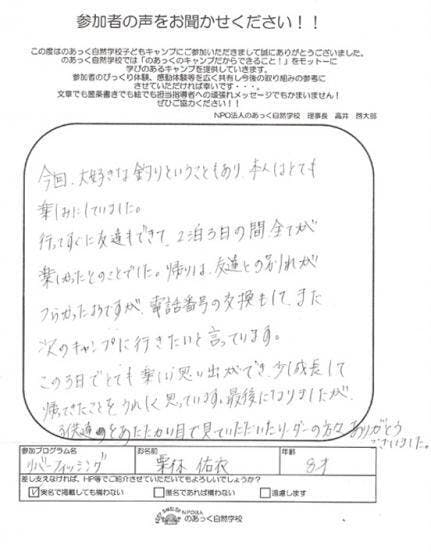 参加者の声をお聞かせください！！
この度はのあっく自然学校子どもキャンプにご参加いただきまして誠にありがとうございました。
のあっく自然学校では「のあっくのキャンプだからできること！」をモットーに
学びのあるキャンプを提供していきます。
参加者のびっくり体験、感動体験等を広く共有し今後の取り組みの参考に
させていただければ幸いです・・・。
文章でも箇条書きでも絵でも担当指導者への頑張れメッセージでもかまいません！
ぜひご協力ください！！
NPO法人のあっく自然学校 理事長 高井 啓太郎
今回、大好きな釣りということもあり、本人はとても
楽しみにしていました。
行ってすぐに友達もできて、2泊3日の間全てが
楽しかったとのことでした。帰りは、友達との別れが
つらかったようですが、電話番号の交換もして、また
次のキャンプに行きたいと言っています。
この3日でとても楽しい思い出ができ、少し成長して
帰ってきたことをうれしく思っています。最後になりましたが、
子供達をあたたかい目で見ていただいたリーダーの方々、ありがとう
ございました。
参加プログラム名 お名前 年齢
リバーフィッシング 栗林 佑衣 8才
差し支えなければ、HP等でご紹介させていただいてもよろしいでしょうか？
実名で掲載しても構わない 匿名であれば構わない 遠慮します
NPO法人
のあっく自然学校